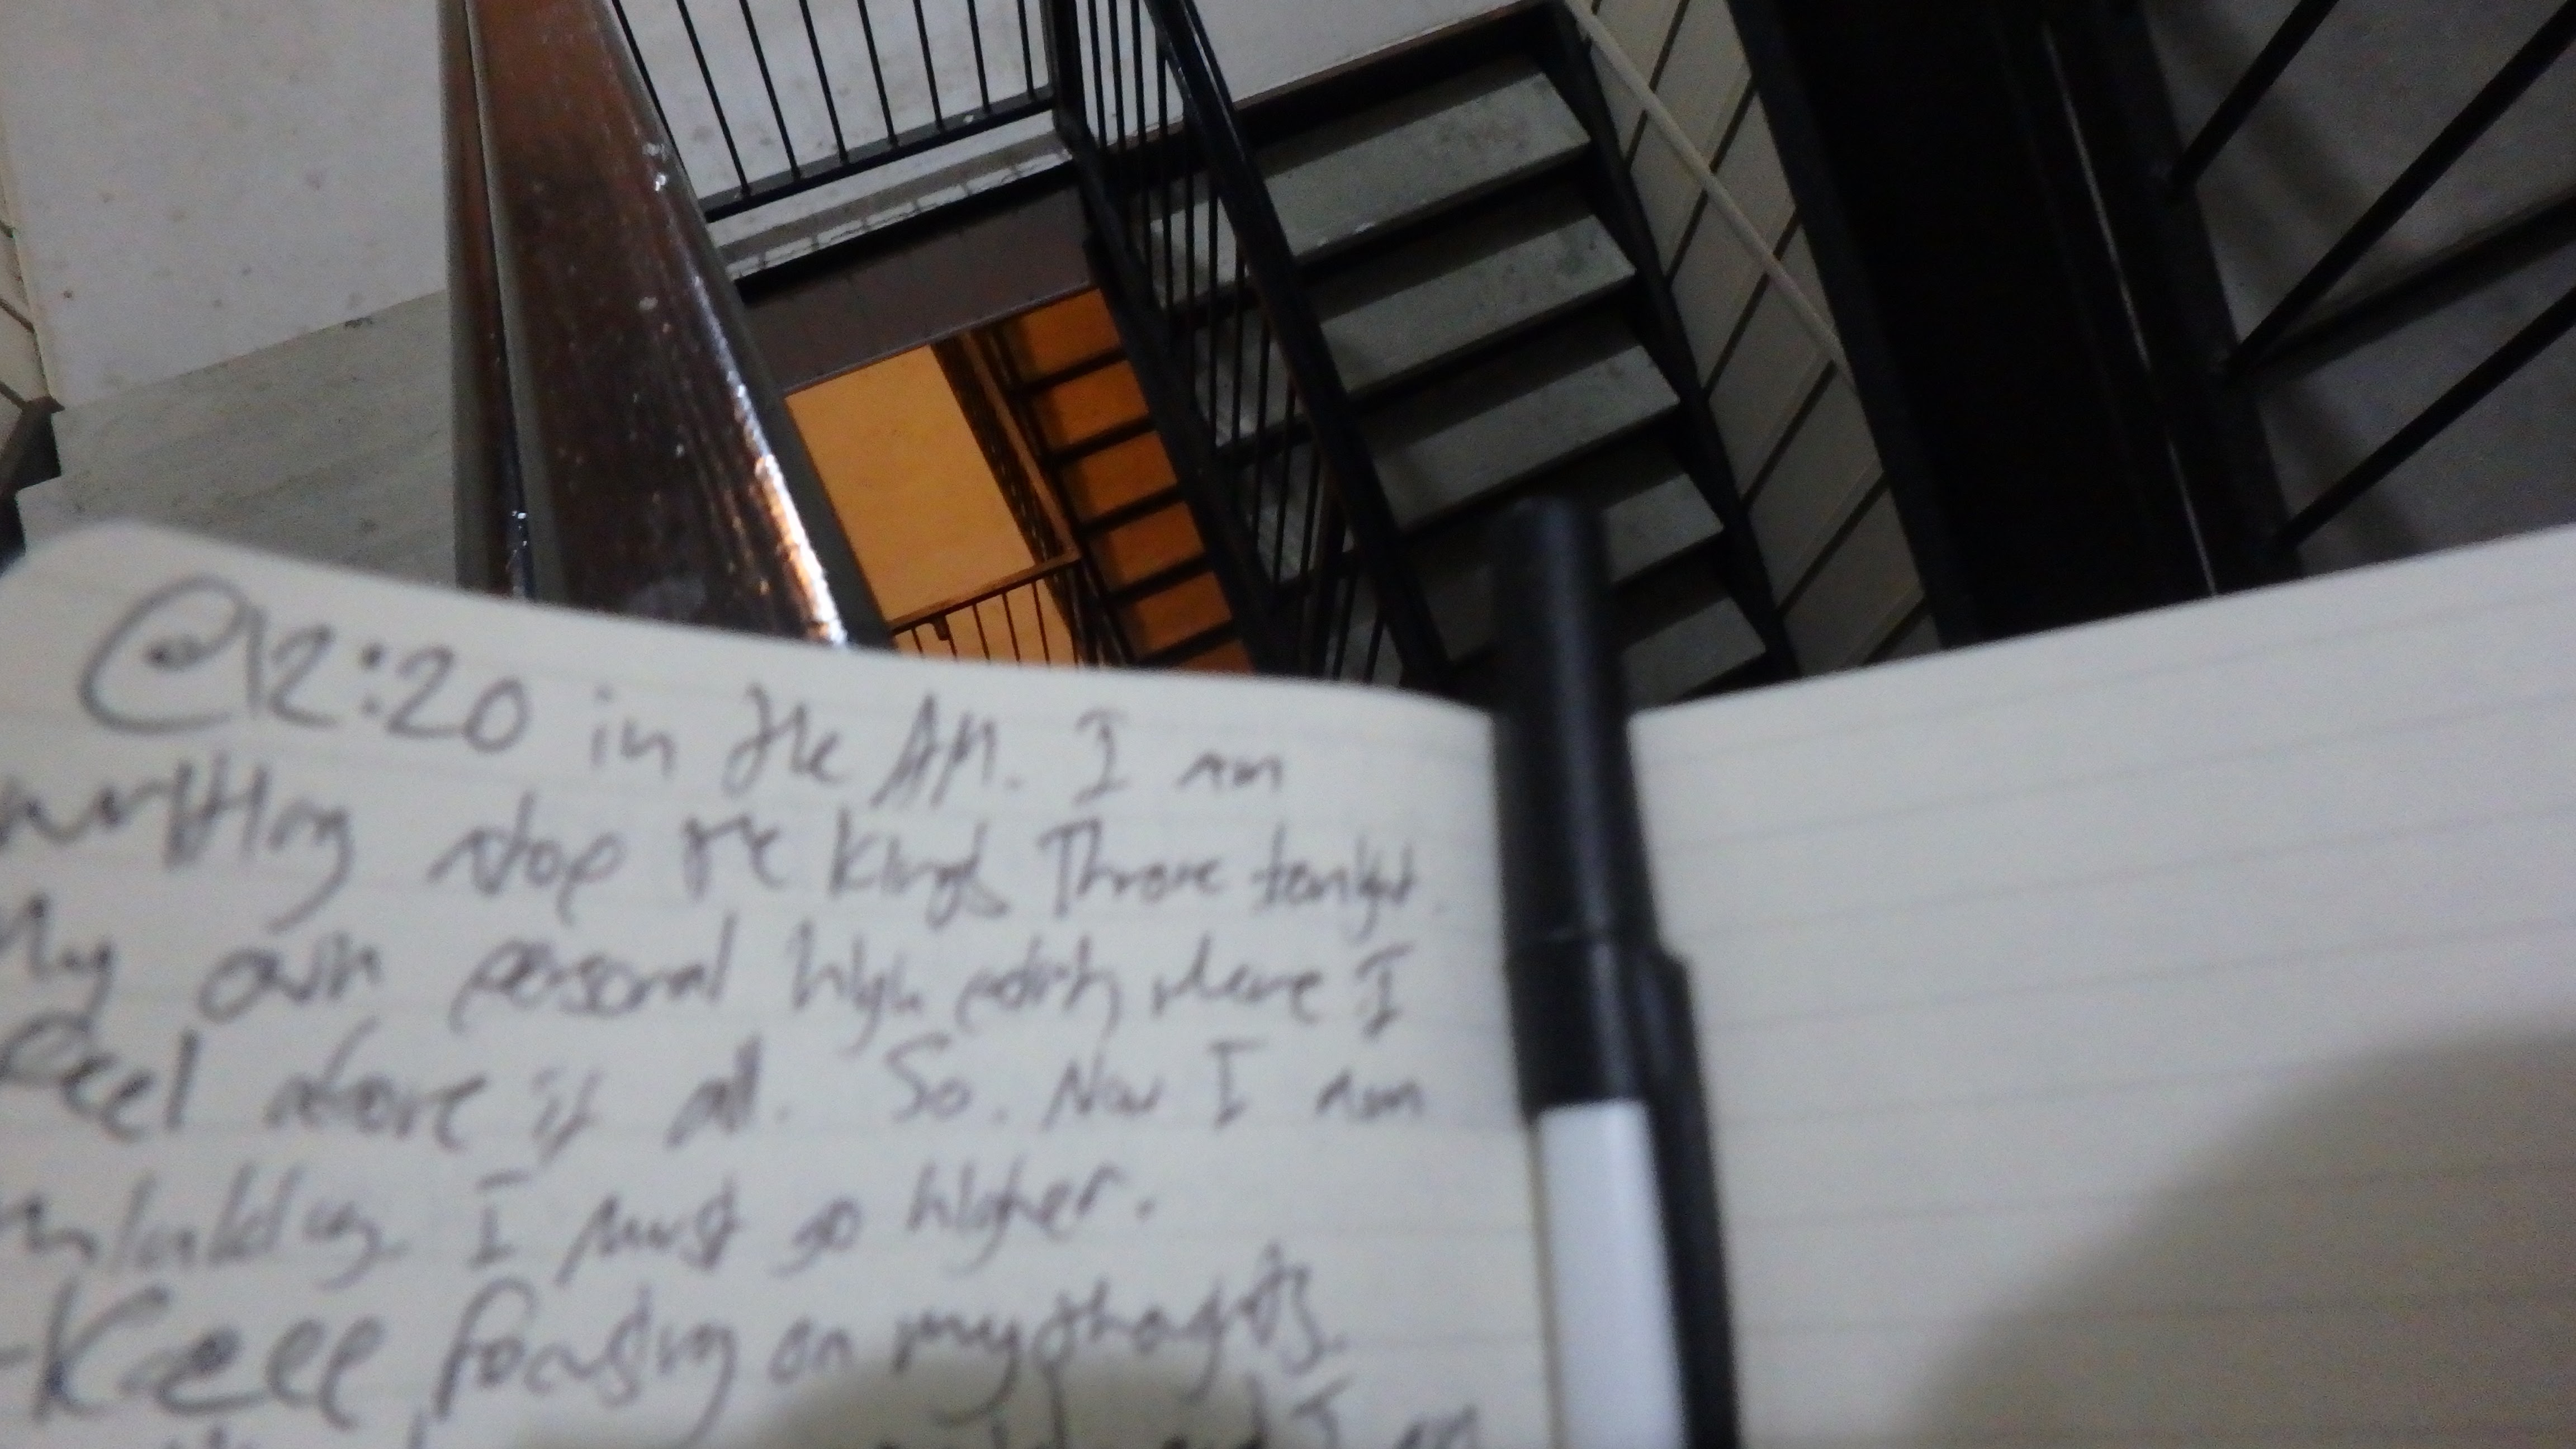 @12:20 in the AM. I am
writting atop the Kings Throne tonight.
My own personal high where I
feel above it all. So. Now I am
I must go higher.
-Keep focusing on my thoughts
I am